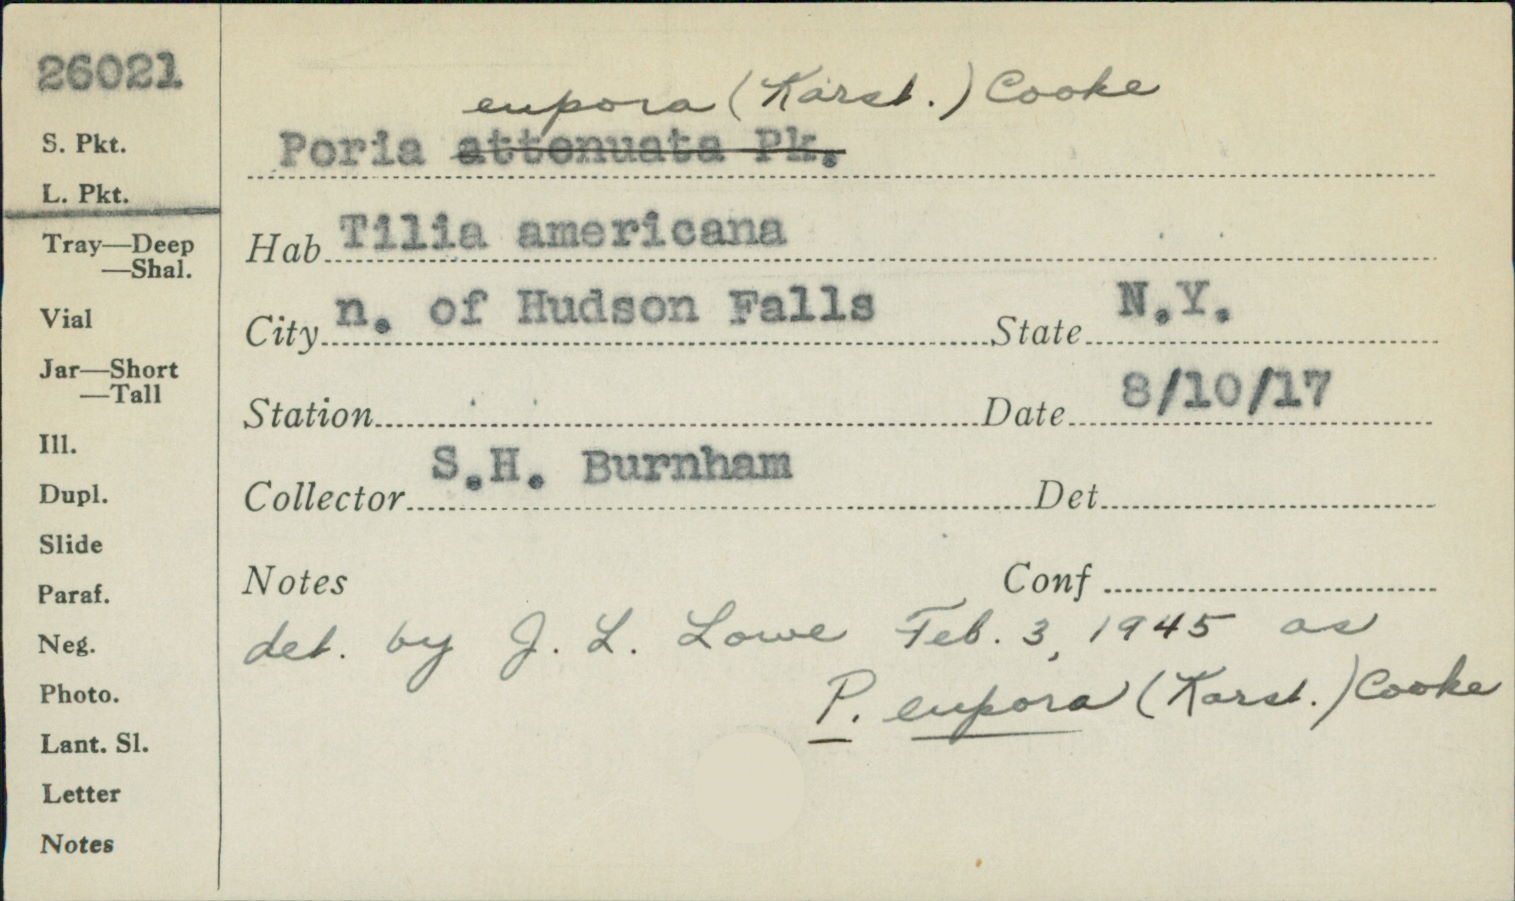 26021
S. Pkt.
L. Pkt.
Tray—Deep
—Shal.
Vial
Jar—Short
—Tall
Ill.
Dupl.
Slide
Paraf.
Neg.
Photo.
Lant. Sl.
Letter
Notes
eupora (Karst.) Cooke
Poria attenuata Pk.
Hab Tilia americana
City n. of Hudson Falls State N.Y.
Station Date 8/10/17
Collector S.H. Burnham Det
Notes Conf
det. by J. L. Lowe Feb. 3, 1945 as
P. eupora (Karst.) Cooke